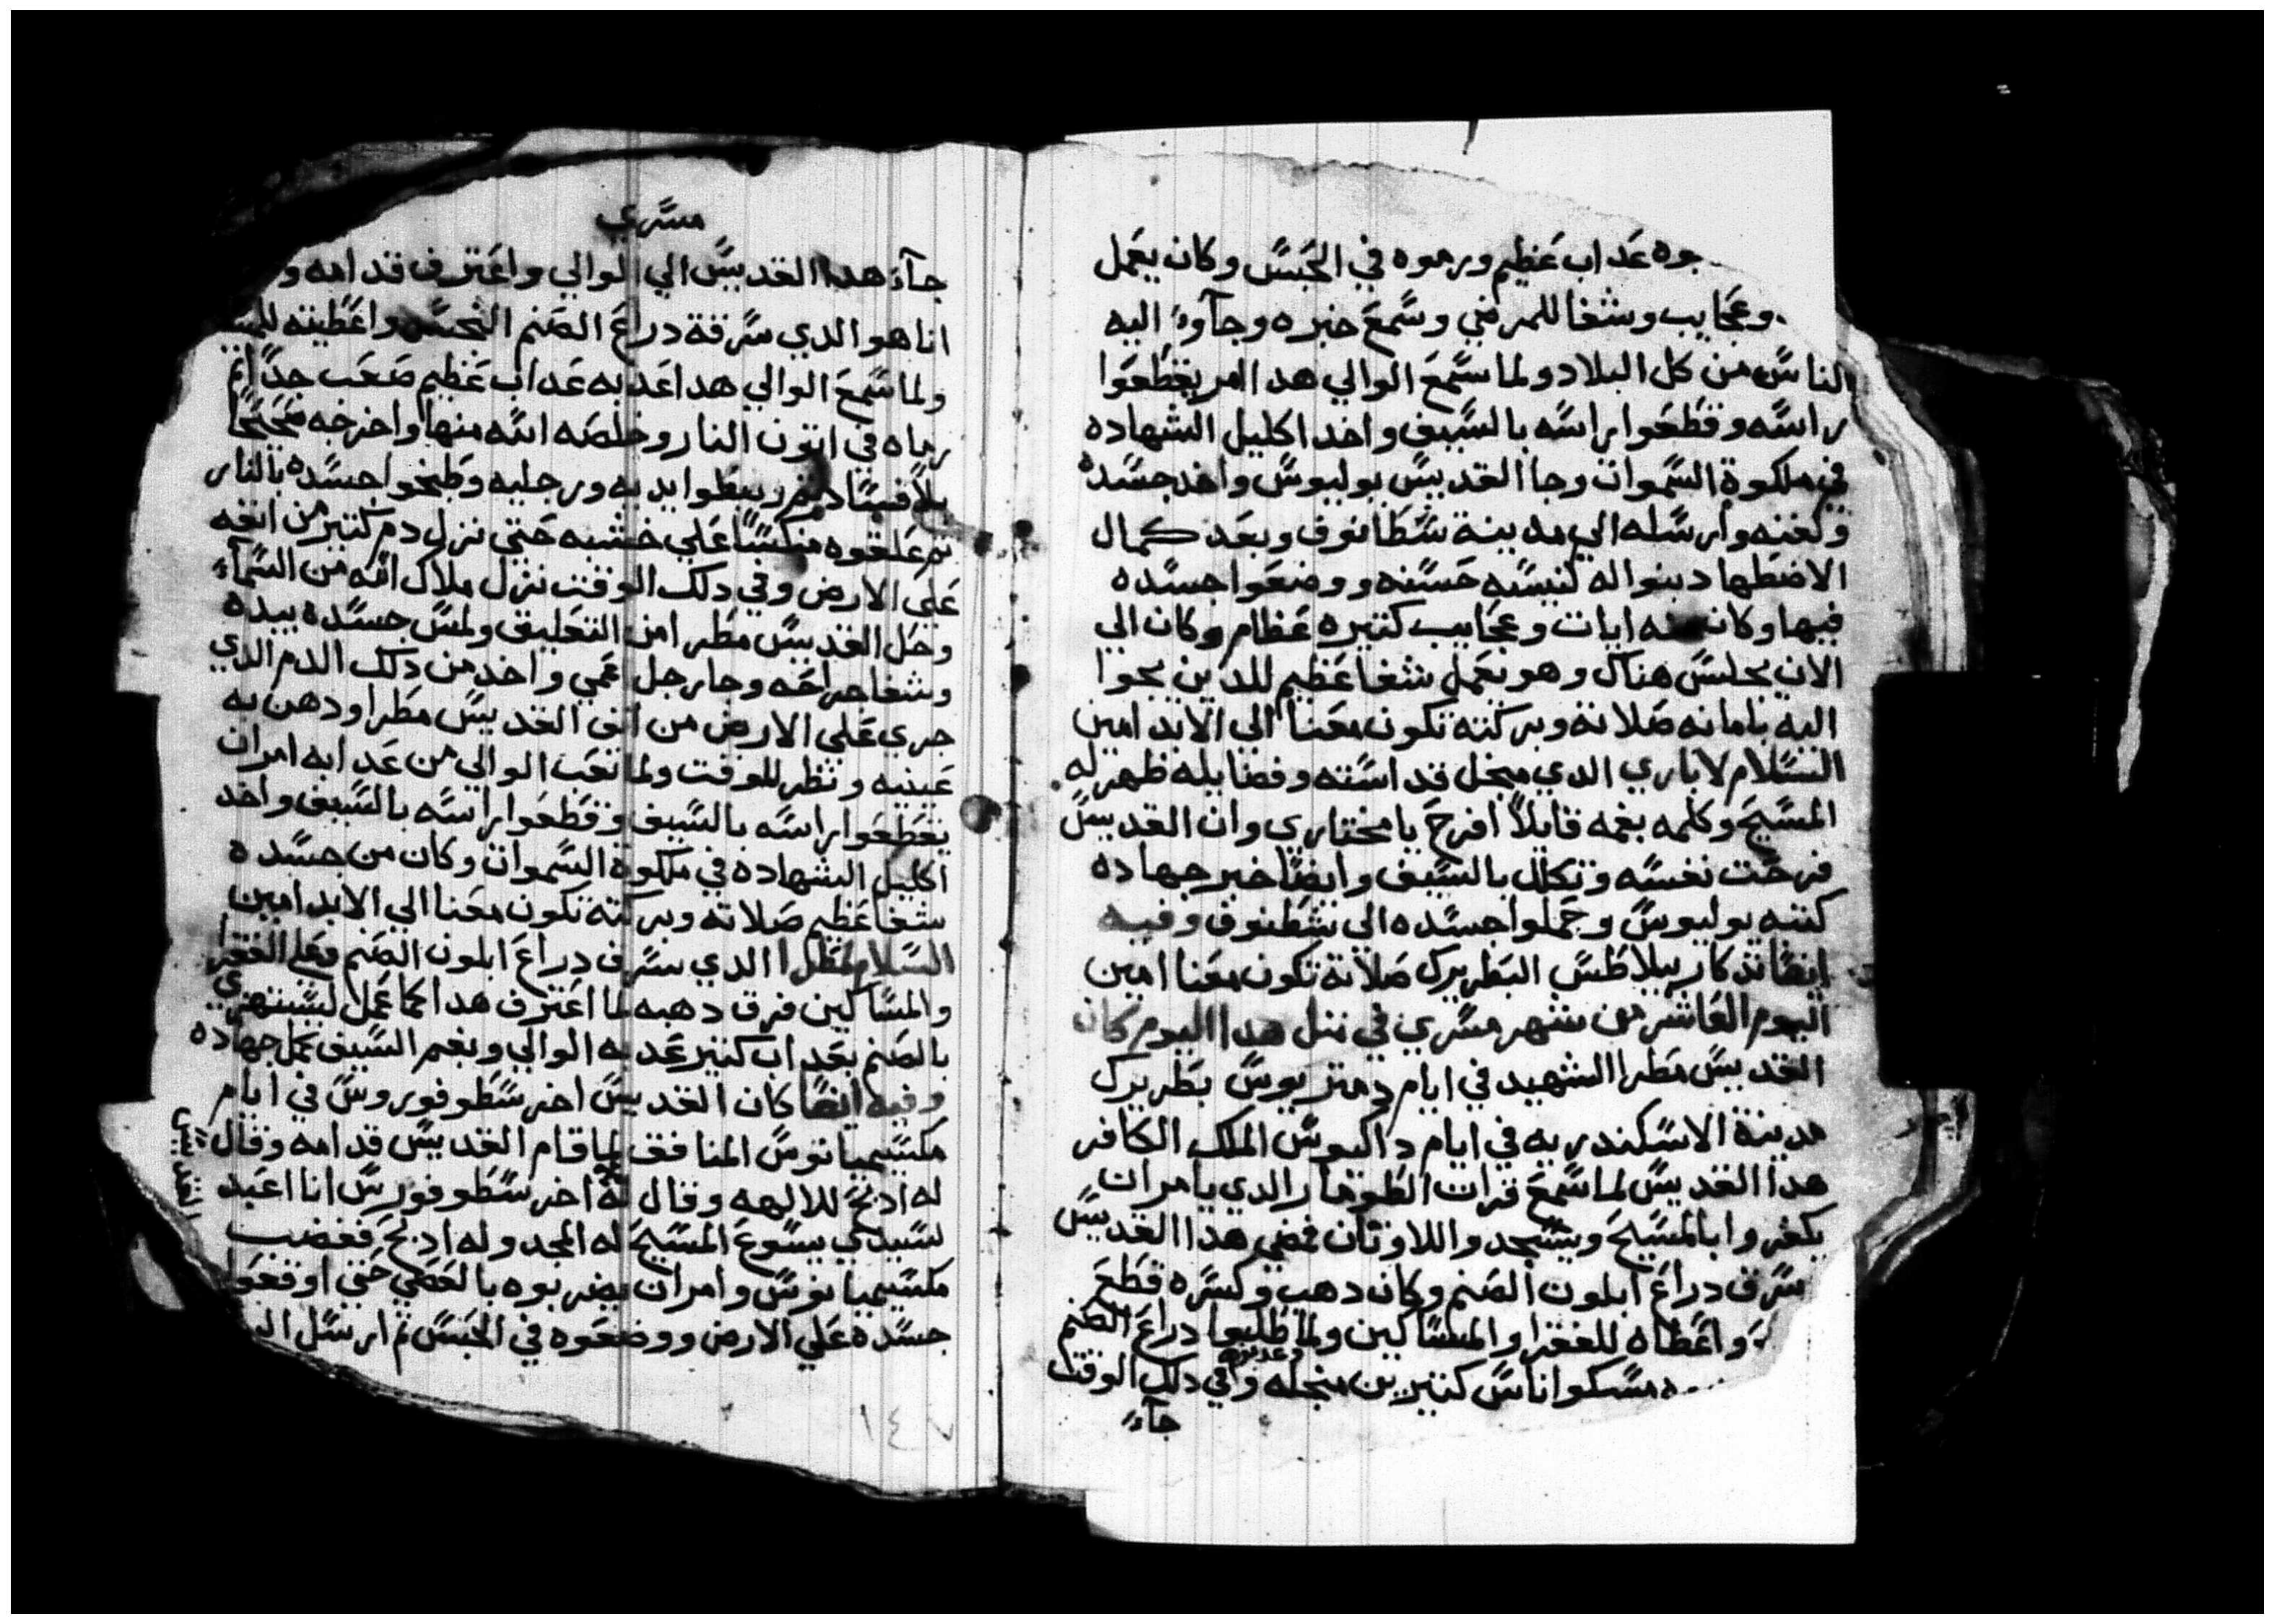 جوه عداب عظيم ورموه في الحبس وكان يعمل
وعجايب وشفا للمرضي وسمع خبره وجآوءا اليه
الناس من كل البلاد ولما سمع الوالي هدا امر يقطعوا
راسه وقطعوا راسه بالسيف واخد اكليل الشهاده
في ملكوة السموات وجا القديس يوليوس واخد جسده
وكفنه وارسله الي مدينة شطانوف وبعد كمال
الاضطهاد بنوا له كنيسه حسنه ووضعوا جسده
فيها وكان منه ايات وعجايب كتيره عظام وكان الي
الان بجلس هناك وهو يعمل شفا عظيم للدين يجوا
اليه بامانه صلاته وبركته تكون معنا الي الابد امين
السلام لاباري الدي مبجل قداسته وفضايله ظهر له
المسيح وكلمه بفمه قايلاً افرح يا مختاري وان القديس
فرحت نفسه وتكلل بالسيف وايضا خبر جهاده
كتبه يوليوس وحملوا جسده الي شطنوف وفيه
ايضا تدكار بيلاطس البطريرك صلاته تكون معنا امين
اليوم العاشر من شهر مسري في متل هدا اليوم كان
القديس مطرا الشهيد في ايام دمتريوس بطريرك
مدينة الاسكندريه في ايام داكيوس الملك الكافر
هدا القديس لما سمع قرات الطومار الدي يامر ان
يكفروا بالمسيح ويسجدوا للاوتان فمضي هدا القديس
سرق دراع ابلون الصنم وكان دهب وكسره قطع
واعطاه للفقرا والمساكين ولما طلبوا دراع الصنم
مسكوا ناس كتيرين منجله وعدبوه وفي دلك الوقت
جآء
مسري
جآء هدا القديس الي الوالي واعترف قدامه و
انا هو الدي سرقة دراع الصنم النجس واعطيته
ولما سمع الوالي هدا عدبه عداب عظيم صعب جداً تم
رماه في اتون النار وخلصه الله منها واخرجه صحيحاً
بلا فساد تم ربطوا يديه ورجليه وطبخوا جسده بالنار
تم علقوه منكساً علي خشبه حتي نزل دم كتير من انفه
علي الارض وفي دلك الوقت نزل ملاك الله من السمآء
وحل القديس مطرا من التعليق ولمس جسده بيده
وشفا جراحه وجا رجل اعمي واخد من دلك الدم الدي
جري علي الارض من انف القديس مطرا ودهن به
عينيه ونظر للوقت ولما تعب الوالي من عدابه امر ان
يقطعوا راسه بالسيف وقطعوا راسه بالسيف واخد
اكليل الشهاده في ملكوة السموات وكان من جسده
شفا عظيم صلاته وبركته تكون معنا الي الابد امين
السلام لمطرا الدي سرق دراع ابلون الصنم وعلي الفقرا
والمساكين فرق دهبه لما اعترف هدا بما عمل ليستهزي
بالصنم بعداب كتير عدبه الوالي وبفم السيف كمل جهاده
وفيه ايضا كان القديس اخرسطوفوروس في ايام
مكسيميانوس المنافق لما قام القديس قدامه وقال القديس
له ادبح للالهه وقال له اخرسطوفورس انا اعبد
لسيدي يسوع المسيح له المجد وله ادبح فغضب
مكسيميانوس وامر ان يضربوه بالعصي حتي اوقعوا
جسده علي الارض ووضعوه في الحبس تم ارسل
١٤٧